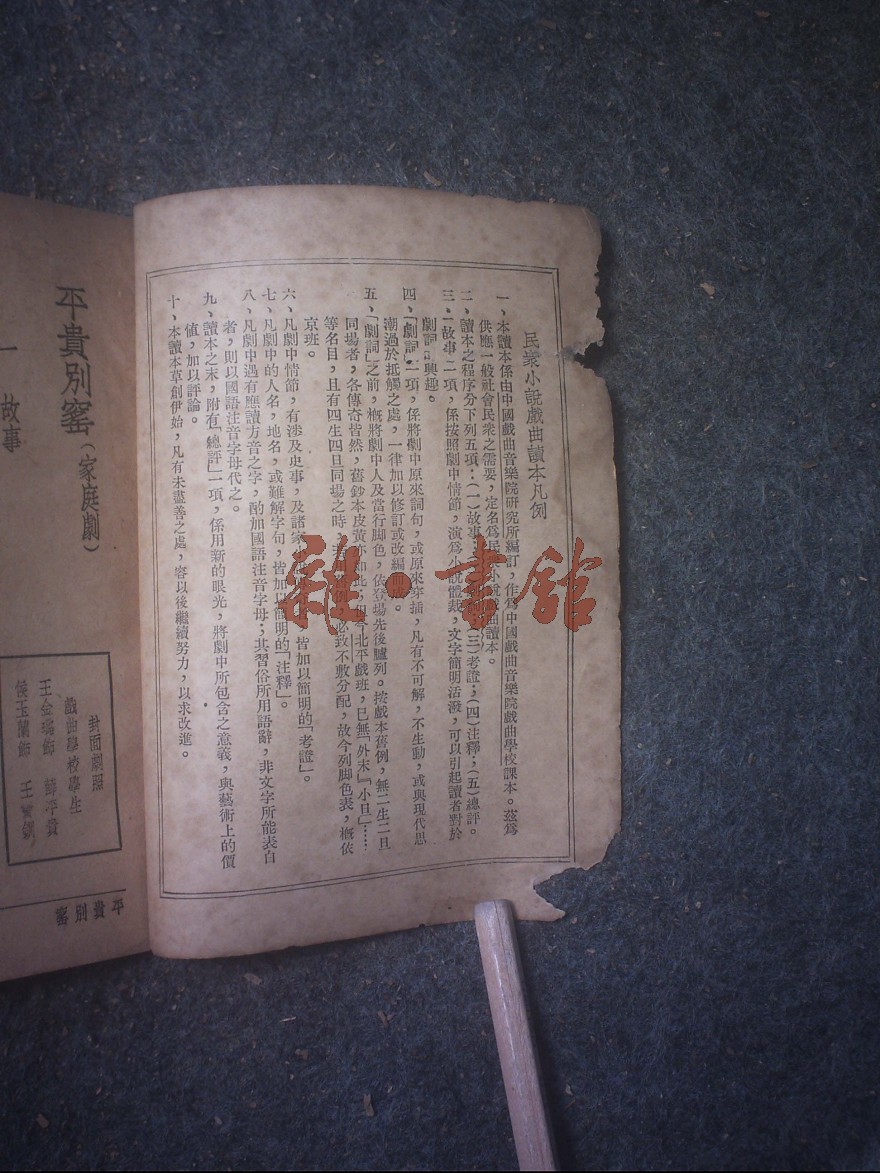 民衆小說戲曲讀本凡例
一、本讀本係由中國戲曲音樂院研究所編訂，作爲中國戲曲音樂院戲曲學校課本。茲爲
供應一般社會民衆之需要，定名爲民衆小說戲曲讀本。
二、讀本之程序分下列五項：（一）故事；（三）考證；（四）注釋；（五）總評。
三、「故事」一項，係按照劇中情節，演爲小說體裁，文字簡明活潑，可以引起讀者對於
劇詞之興趣。
四、「劇詞」一項，係將劇中原來詞句，或原來穿插，凡有不可解，不生動，或與現代思
潮過於抵觸之處，一律加以修訂或改編而成。
五、「劇詞」之前，概將劇中人及當行脚色，依登場先後臚列。按戲本舊例，無二生二旦
同場者，各傳奇皆然，舊鈔本皮黃亦如此；但今北平戲班，已無「外末」「小旦」……
等名目，且有四生四旦同場之時，必致不敷分配，故今列脚色表，概依
京班。
六、凡劇中情節，有涉及史事，及諸家皆加以簡明的「考證」。
七、凡劇中的人名，地名，或難解字句，皆加以簡明的「注釋」。
八、凡劇中遇有應讀方音之字，酌加國語注音字母；其習俗所用語辭，非文字所能表白
者，則以國語注音字母代之。
九、讀本之末，附有「總評」一項，係用新的眼光，將劇中所包含之意義，與藝術上的價
值，加以評論。
十、本讀本草創伊始，凡有未盡善之處，容以後繼續努力，以求改進。
雜·書館
平貴別窰（家庭劇）
一 故事
封面劇照
戲曲學校學生
王金璐飾 薛平貴
侯玉蘭飾 王寳釧
平貴別窰